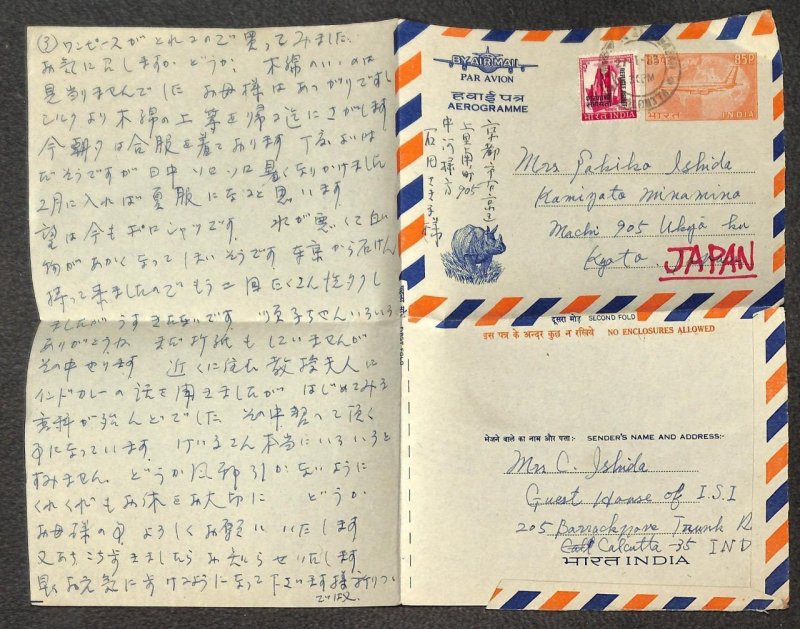 ③ワンピースがとれるので買ってみました
お気に召しますかどうか、木綿のいいのは
見当りませんでした お母様はあつがりですし
シルクより木綿の上等を帰る迄にさがします
今朝夕は合服を着ております 丁度よいは
だそうですが日中ソロソロ暑くなりかけました
2月に入れば夏服になると思います
望は今もポロシャツです、水が悪くて白い
物があかくなってしまいそうです 東京から石けん
持って来ましたのでもう二回たくさん洗タクし
ましたがうすきたないです
ありがとうね まだ折紙もしていませんが
その中やります 近くに住む教授夫人に
インドカレーの話を聞きましたが はじめてみる
香料が殆んどでした その中習って頂く
事になっています、 本当にいろいろと
すみません、どうか風邪引かないように
くれぐれもお体をお大切に どうか
お母様の事よろしくお願いいたします
又あちこち すきましたらお知らせいたします
お元気に 様になって下さいます様祈りつつ
では又
BY AIR MAIL
PAR AVION
हवाई पत्र
AEROGRAMME
भारत INDIA
85P
भारत INDIA
京都市右京区
上里南町905
中河様方
石田 様
Mrs Ishida
Kamizato Minamino
Machi 905 Ukyo ku
Kyoto
JAPAN
FIRST FOLD
दूसरा मोड़ SECOND FOLD
इस पत्र के अन्दर कुछ न रखिये NO ENCLOSURES ALLOWED
भेजने वाले का नाम और पता:- SENDER'S NAME AND ADDRESS:-
Mrs C. Ishida
Guest House of I.S.I
205 Barrackpore Trunk R
Calcutta-35 IND
भारत INDIA